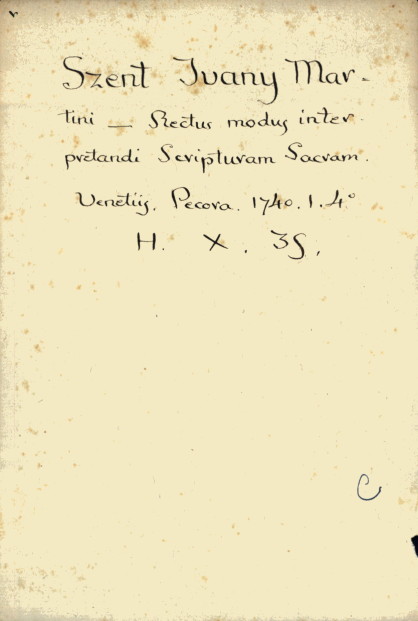 Szent Ivany Mar-
tini — Rectus modus inter-
pretandi Scripturam Sacram.
Venetijs. Pecora. 1740. 1. 4°
H. X. 35.
C